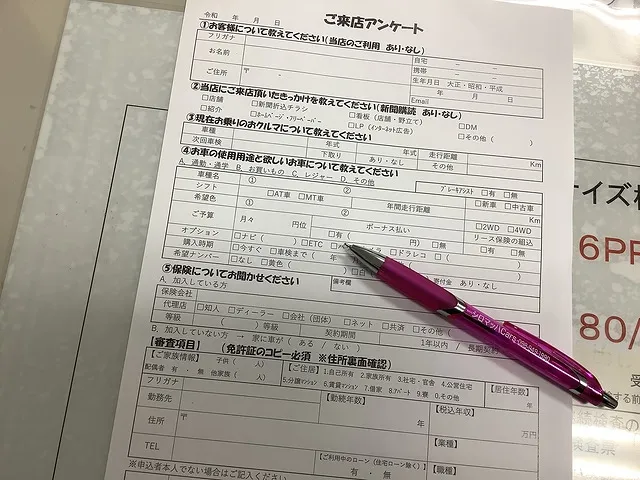 令和 年 月 日
ご来店アンケート
①お客様について教えてください(当店のご利用 あり・なし)
フリガナ
お名前
自宅 － －
携帯 － －
ご住所 〒 －
生年月日 大正・昭和・平成
年 月 日
Email
②当店にご来店頂いたきっかけを教えてください(新聞購読 あり なし)
□店舗 □新聞折込チラシ □看板(店舗・野立て) □DM
□紹介 □ホームページ・フリーペーパー □LP(インターネット広告) □その他(
③現在お乗りのおクルマについて教えてください
車種 年式 年式 走行距離 Km
次回車検 下取り あり・なし その他
④お車の使用用途と欲しいお車について教えてください
A、通勤・通学 B、お買いもの C、レジャー D、その他
車種名 ① ② ブレーキアシスト □有 □無
シフト □AT車 □MT車 □新車 □中古車
希望色 ① ② 年間走行距離 Km
ご予算 月々 円位 ボーナス払い □2WD □4WD
□有( 円) □無 リース保険の組込
オプション □ナビ( ) □ETC □ドラレコ □( )
購入時期 □今すぐ □車検まで( 年 □有 □無
希望ナンバー □なし □黄色( □白( 寄付金 あり・なし
⑤保険についてお聞かせください 備考欄
A、加入している方
保険会社
代理店 □知人 □ディーラー □会社(団体) □ネット □共済 □その他(
等級 )等級 契約期間 1年以内 / 長期契約
B、加入していない方 → 家に車が( ある / ない )
【審査項目】 (免許証のコピー必須 ※住所裏面確認)
【ご家族情報】 子供( 人) 【ご住居】 1.自己所有 2.家族所有 3.社宅・官舎 4.公営住宅 【居住年数】
配偶者 有 ・ 無 他家族( 人) 5.分譲マンション 6.賃貸マンション 7.借家 8.アパート 9.寮 0.その他 年
フリガナ
勤務先 【勤続年数】 年 【税込年収】 万円
住所 〒 【業種】
TEL 【ご利用中のローン(住宅ローン除く)】 有 ・ 無 【職種】
※申込者本人でない場合はご記入ください
シロマツハCars
6PP
80/